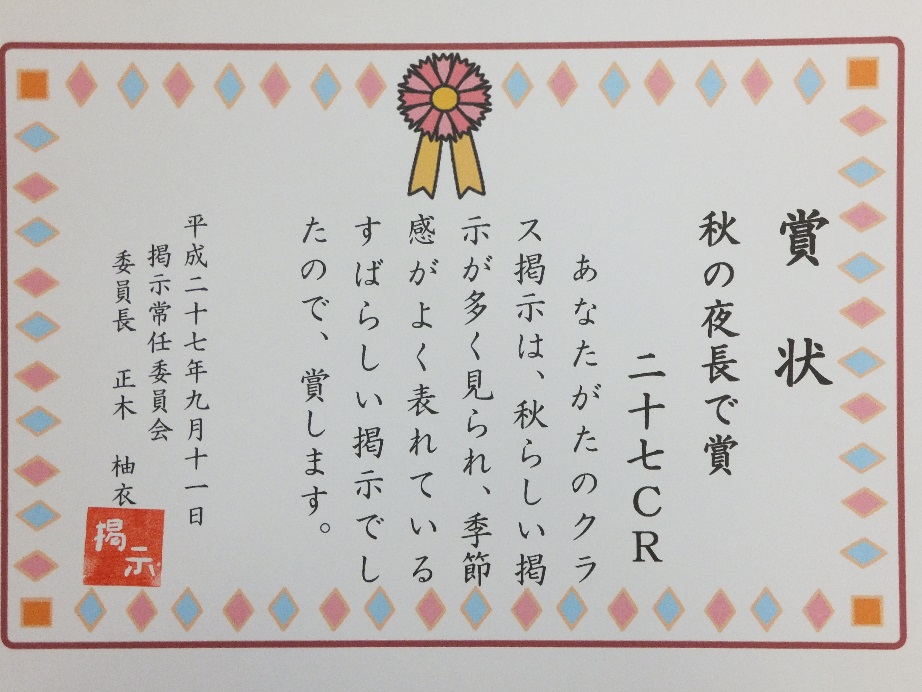 賞状
秋の夜長で賞
二十七CR
あなたがたのクラ
ス掲示は、秋らしい掲
示が多く見られ、季節
感がよく表れている
すばらしい掲示でし
たので、賞します。
平成二十七年九月十一日
掲示常任委員会
委員長 正木 柚衣
掲示